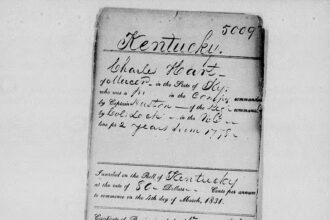 5009
Kentucky.
Charles Hart
of Mercer in the State of Ky.
who was a Pri in the Compy commanded
by Captain Huston of the Reg commanded
by Col. Lock in the N.C.
line for 2 years from 1778.
Inscribed on the Roll of Kentucky
at the rate of 80 Dollars Cents per annum
to commence on the 4th day of March, 1831.